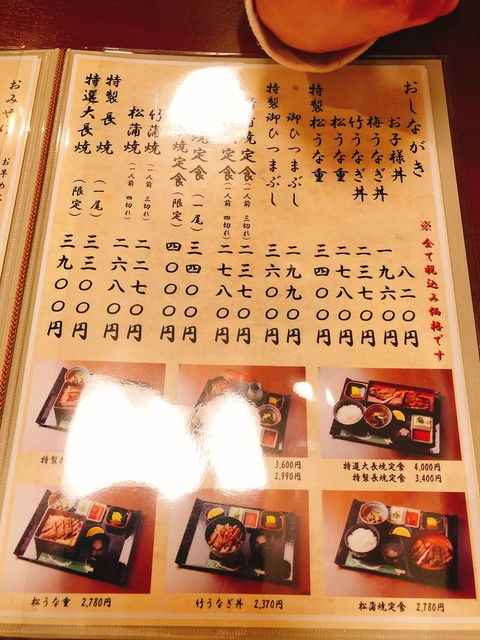 おしながき
※全て税込み価格です
お子様丼 八二〇円
梅うなぎ丼 一九六〇円
竹うなぎ丼 二三七〇円
松うな重 二七八〇円
特製松うな重 三四〇〇円
御ひつまぶし 二九九〇円
特製御ひつまぶし 三六〇〇円
蒲焼定食(一人前 三切れ) 二三七〇円
定食(一人前 四切れ) 二七八〇円
焼定食(一尾) 三四〇〇円
焼定食(限定) 四〇〇〇円
竹蒲焼(一人前 三切れ) 二二七〇円
松蒲焼(一人前 四切れ) 二六八〇円
特製長焼(一尾) 三三〇〇円
特選大長焼(限定) 三九〇〇円
特選大長焼定食 4,000円
特製長焼定食 3,400円
3,600円
2,990円
特製
松うな重 2,780円
竹うなぎ丼 2,370円
松蒲焼定食 2,780円
お早め